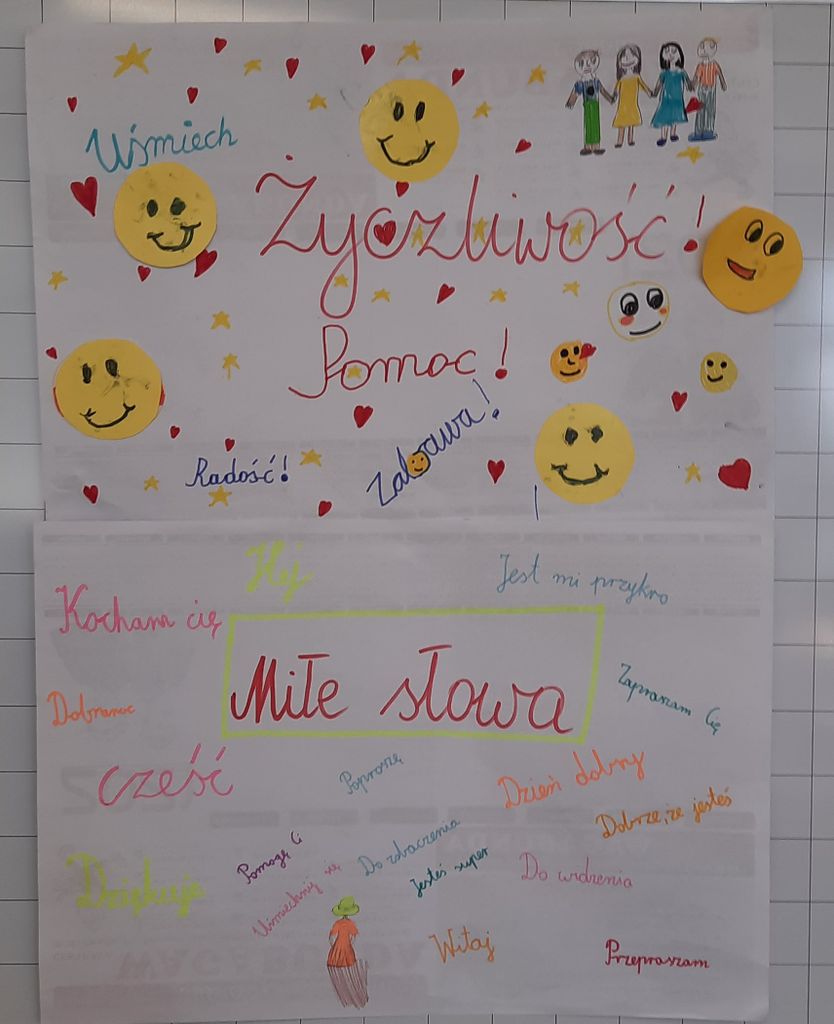 Uśmiech
Życzliwość!
Pomoc!
Zabawa!
Radość!
Hej
Jest mi przykro
Kocham cię
Miłe słowa
Zapraszam Cię
Dobranoc
cześć
Poproszę
Dzień dobry
Dobrze, że jesteś
Pomogę Ci
Do zobaczenia
Jesteś super
Do widzenia
Dziękuję
Uśmiechnij się
Witaj
Przepraszam